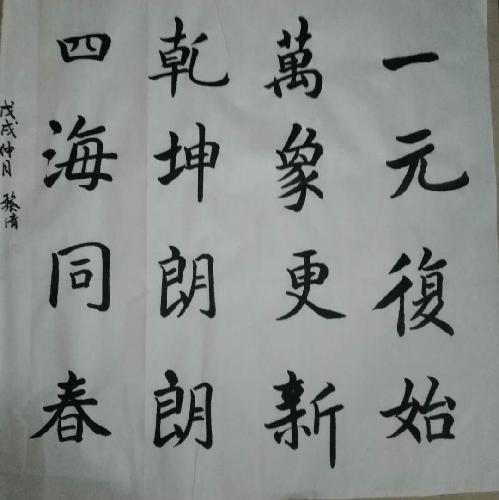 一元復始
萬象更新
乾坤朗朗
四海同春
戊戌仲月